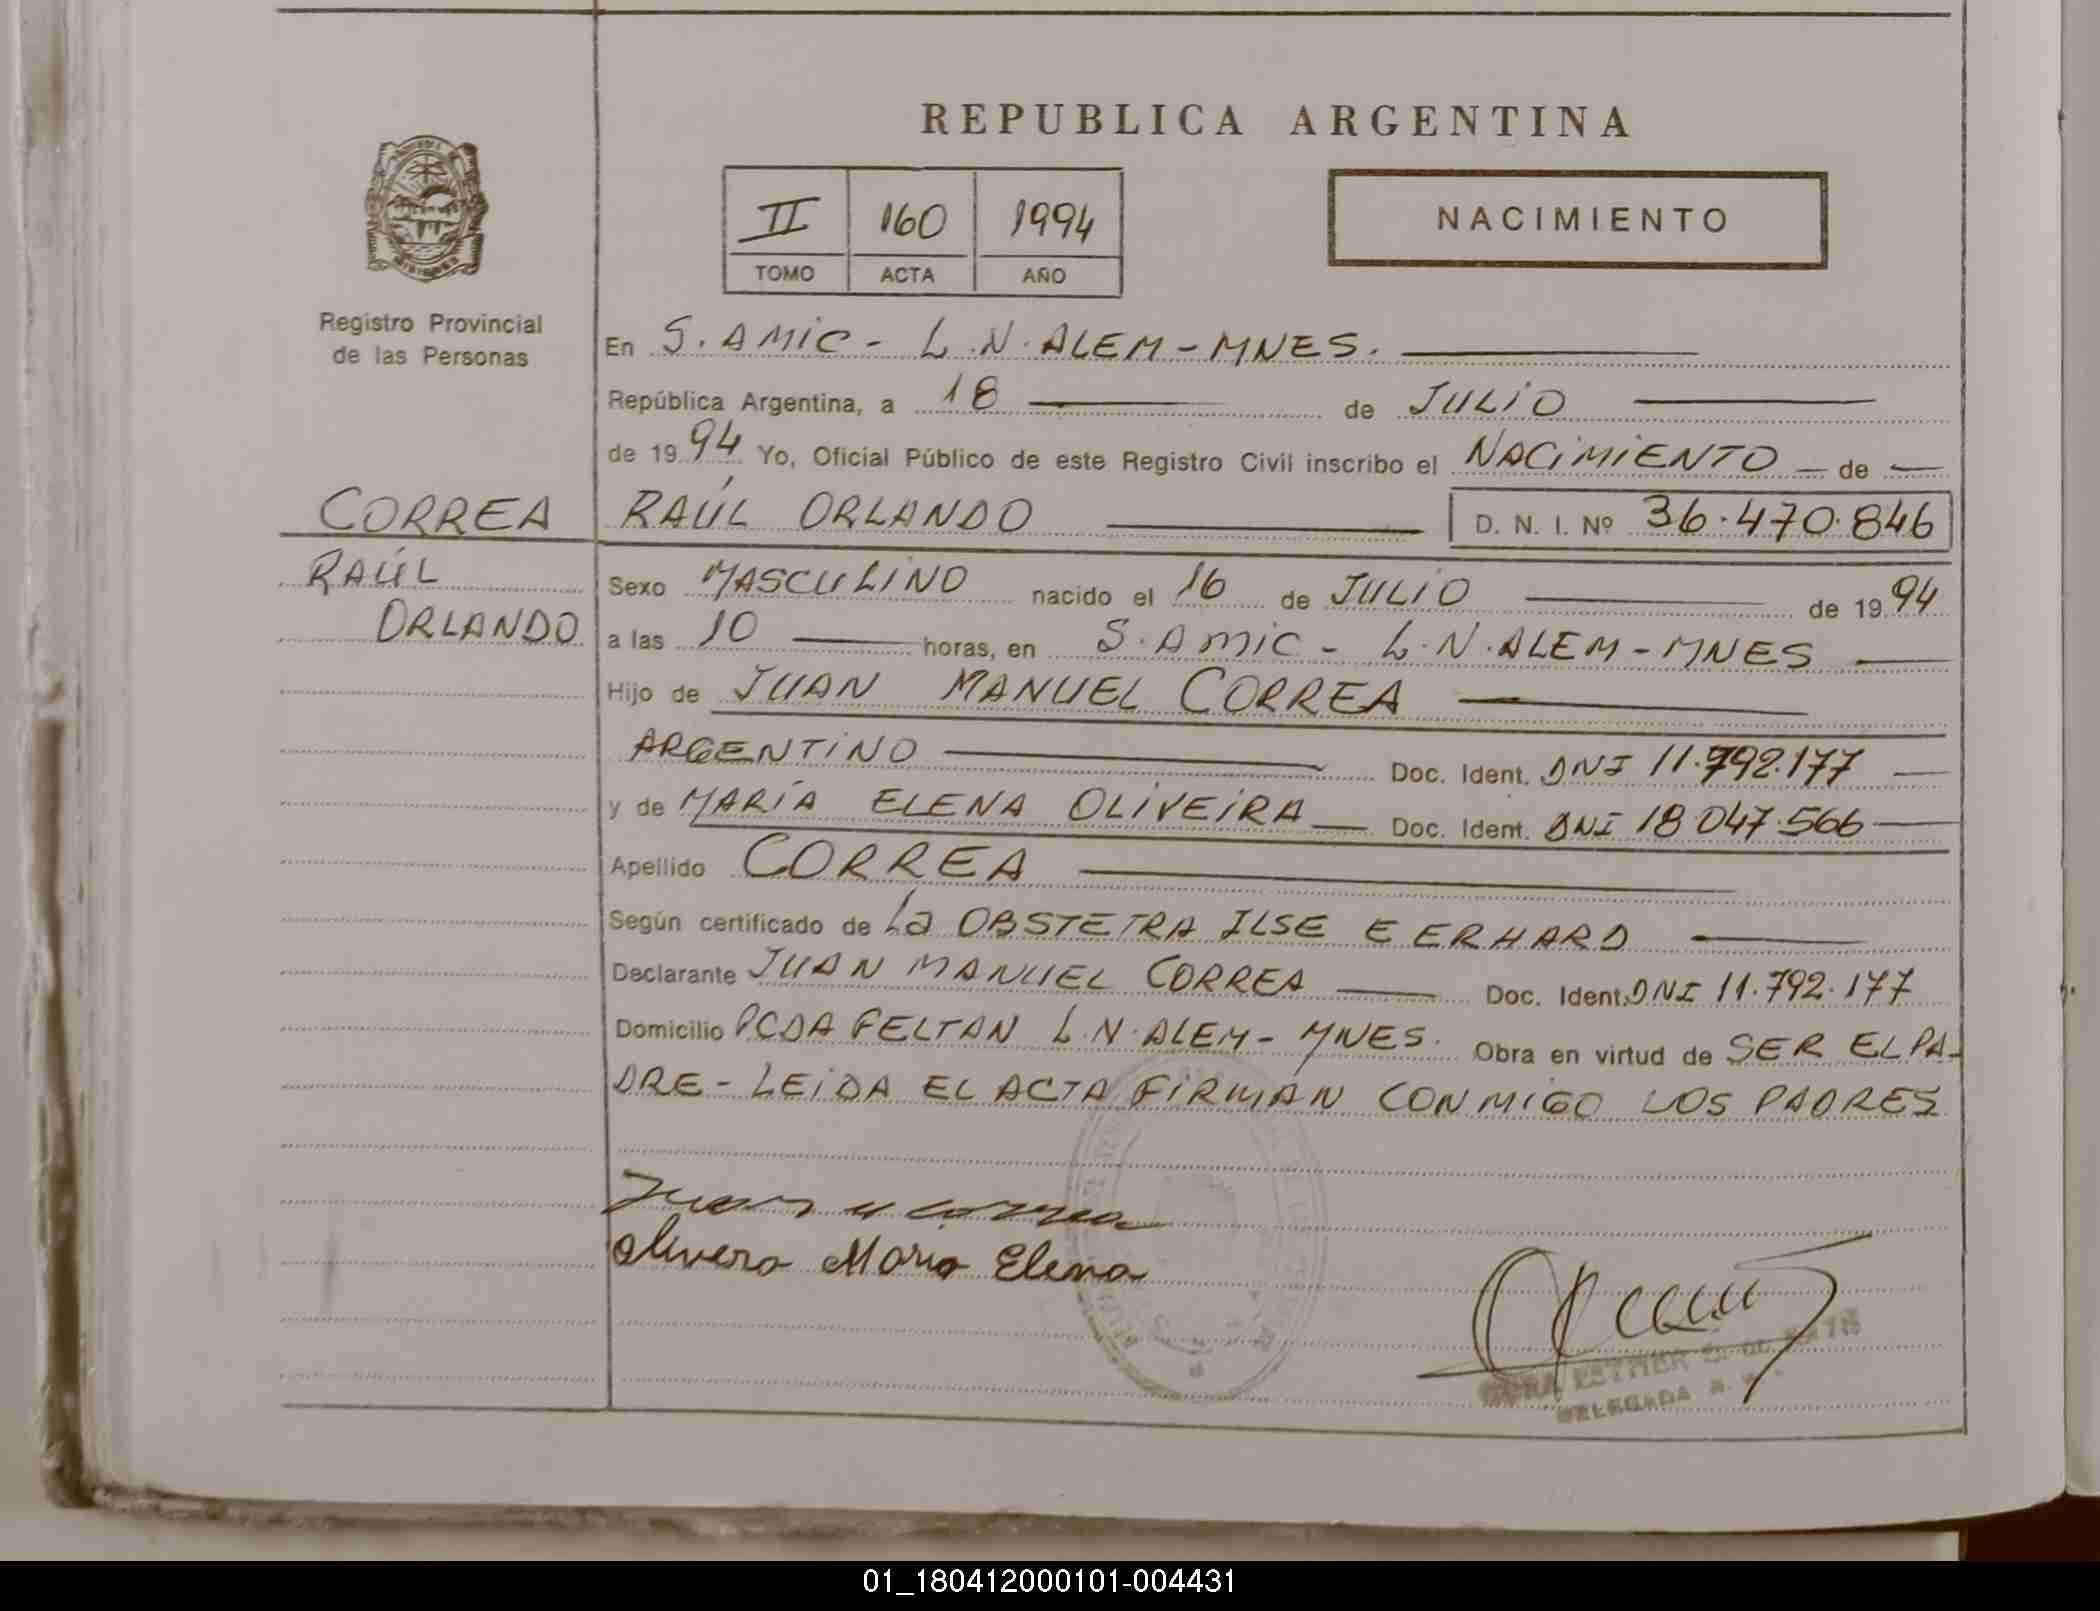 REPUBLICA ARGENTINA
II 160 1994
TOMO ACTA AÑO
NACIMIENTO
Registro Provincial
de las Personas
En S. AMIC - L.N. ALEM - MNES.
República Argentina, a 18 de JULIO
de 1994 Yo, Oficial Público de este Registro Civil inscribo el NACIMIENTO de
CORREA RAÚL ORLANDO D. N. I. Nº 36.470.846
RAÚL
ORLANDO
Sexo MASCULINO nacido el 16 de JULIO de 1994
a las 10 horas, en S. AMIC - L.N. ALEM - MNES
Hijo de JUAN MANUEL CORREA
ARGENTINO Doc. Ident. DNI 11.792.177
y de MARÍA ELENA OLIVEIRA Doc. Ident. DNI 18.047.566
Apellido CORREA
Según certificado de La OBSTETRA ILSE E ERHARD
Declarante JUAN MANUEL CORREA Doc. Ident. DNI 11.792.177
Domicilio PCDA FELTAN L.N. ALEM - MNES. Obra en virtud de SER EL PA-
DRE - LEIDA EL ACTA FIRMAN CONMIGO LOS PADRES
Juan M Correa
Olivera Maria Elena
ESTHER DE
DELEGADA
01_180412000101-004431